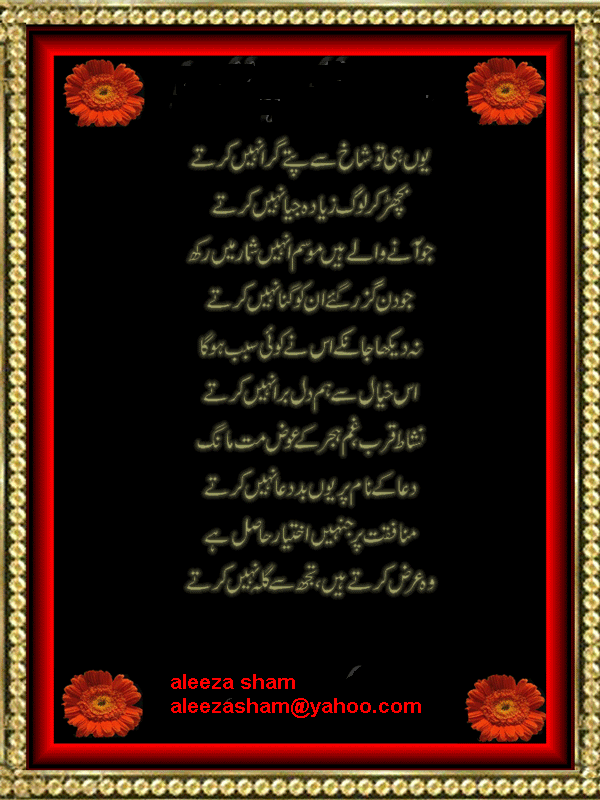 یوں ہی تو شاخ سے پتے گرا نہیں کرتے
بچھڑ کر لوگ زیادہ جیا نہیں کرتے
جو آنے والے ہیں موسم انہیں شمار میں رکھ
جو دن گزر گئے ان کو گنا نہیں کرتے
نہ دیکھا جانکے اس نے کوئی سبب ہوگا
اس خیال سے ہم دل برا نہیں کرتے
نشاط قرب، غم ہجر کے عوض مت مانگ
دعا کے نام پر یوں بددعا نہیں کرتے
منافقت پر جنہیں اختیار حاصل ہے
وہ عرض کرتے ہیں، تجھ سے گلہ نہیں کرتے
aleeza sham
aleezasham@yahoo.com